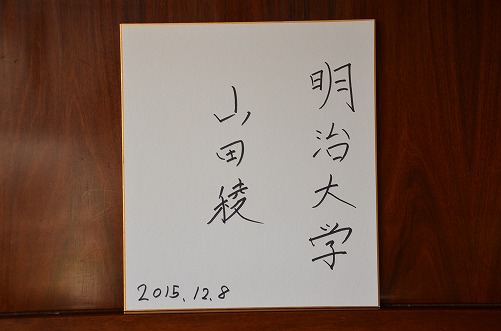 明治大学
山田稜
2015.12.8